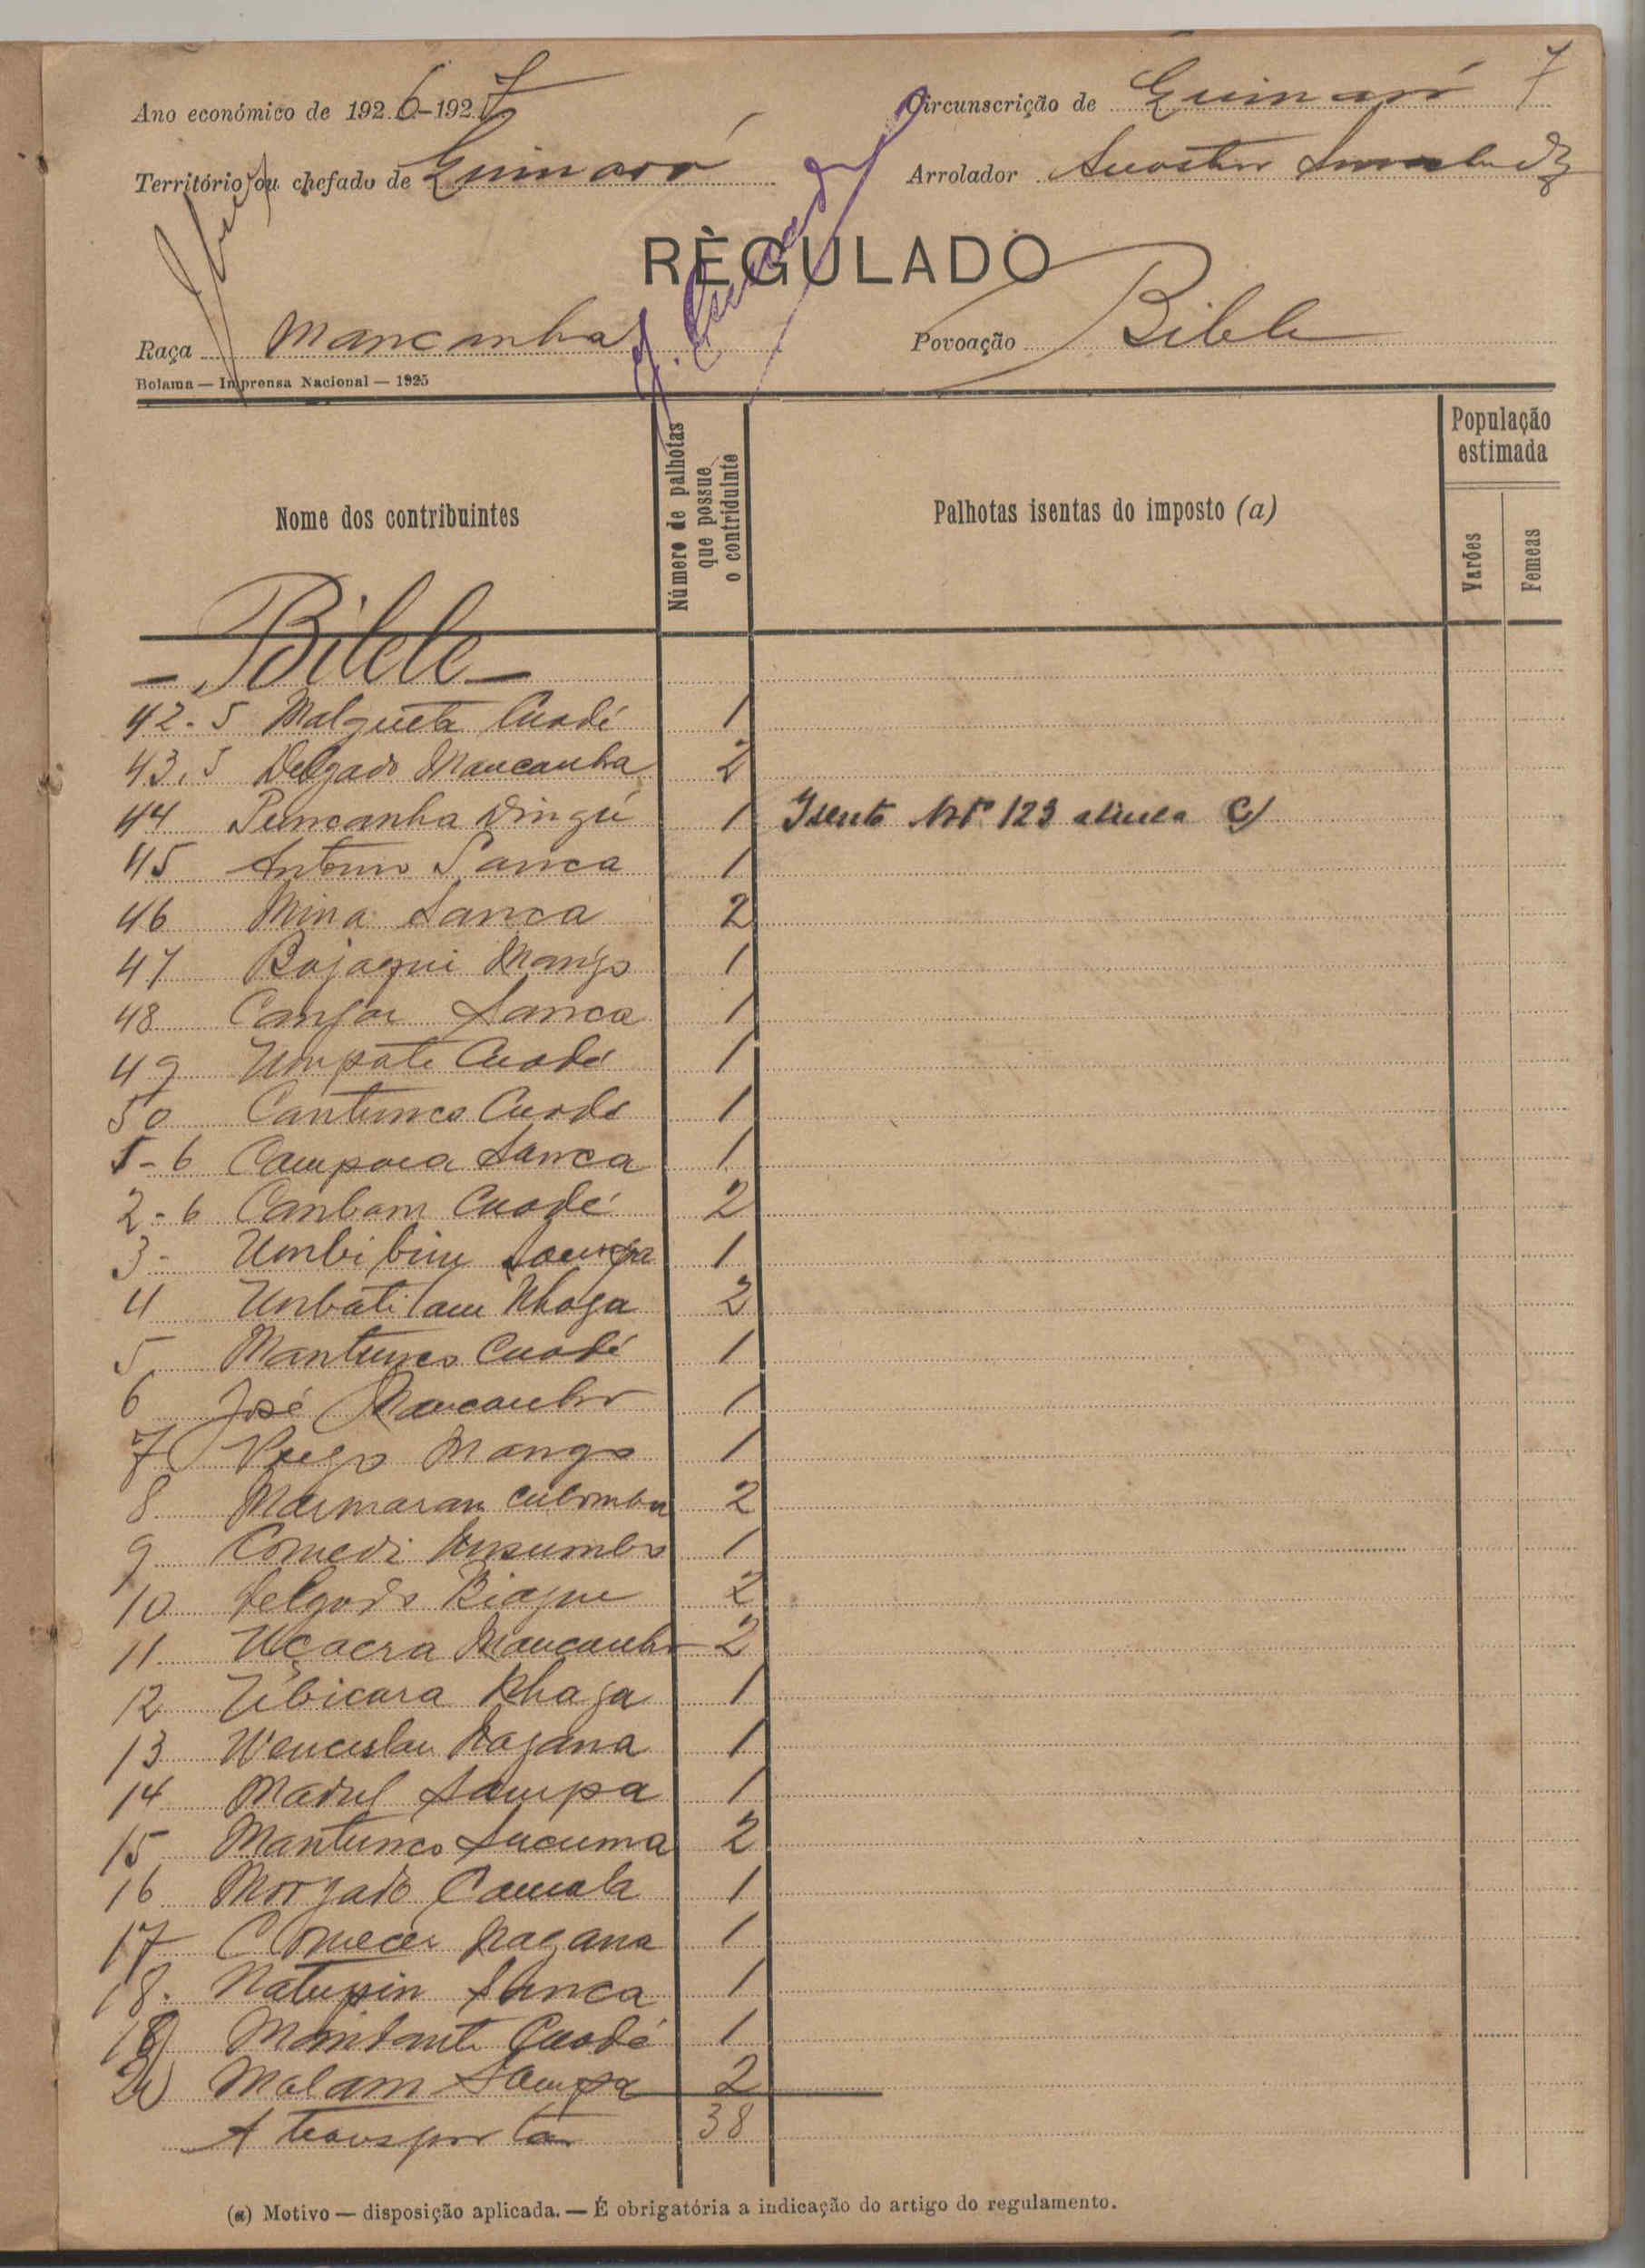 7
Ano económico de 1926-1927 Circunscrição de Guinaró
Território ou chefado de Guinaró Arrolador
RÈGULADO
Raça Mancanha Povoação Bilele
Bolama — Imprensa Nacional — 1925
Nome dos contribuintes
Número de palhotas
que possue
o contriduinte
Palhotas isentas do imposto (a)
População
estimada
Varões
Femeas
- Bilele -
42-5 Malgueta Cuodé 1
43.5 Delgado Mancanha 2
44 Dingú 1 Isento Artº 123 alinea C)
45 Antonio Sanca 1
46 Mina Sanca 2
47 Mango 1
48 Sanca 1
49 Umpate Cuodé 1
50 Cantunco Cuodé 1
1-6 Sanca 1
2-6 Cambam Cuodé 2
3- 1
4 Nhaga 2
5 Mantunco Cuodé 1
6 José Mancanha 1
7 Mango 1
8 2
9 1
10 Delgado Biague 2
11 Mancanha 2
12 Ubicara Nhaga 1
13 Wenceslau Nagana 1
14 Sampa 1
15 Mantunco Sucuma 2
16 Morgado 1
17 Nagana 1
18. Natupin Sanca 1
Cuodé 1
20 Malam Sampa 2
A transportar 38
(a) Motivo — disposição aplicada. — É obrigatória a indicação do artigo do regulamento.